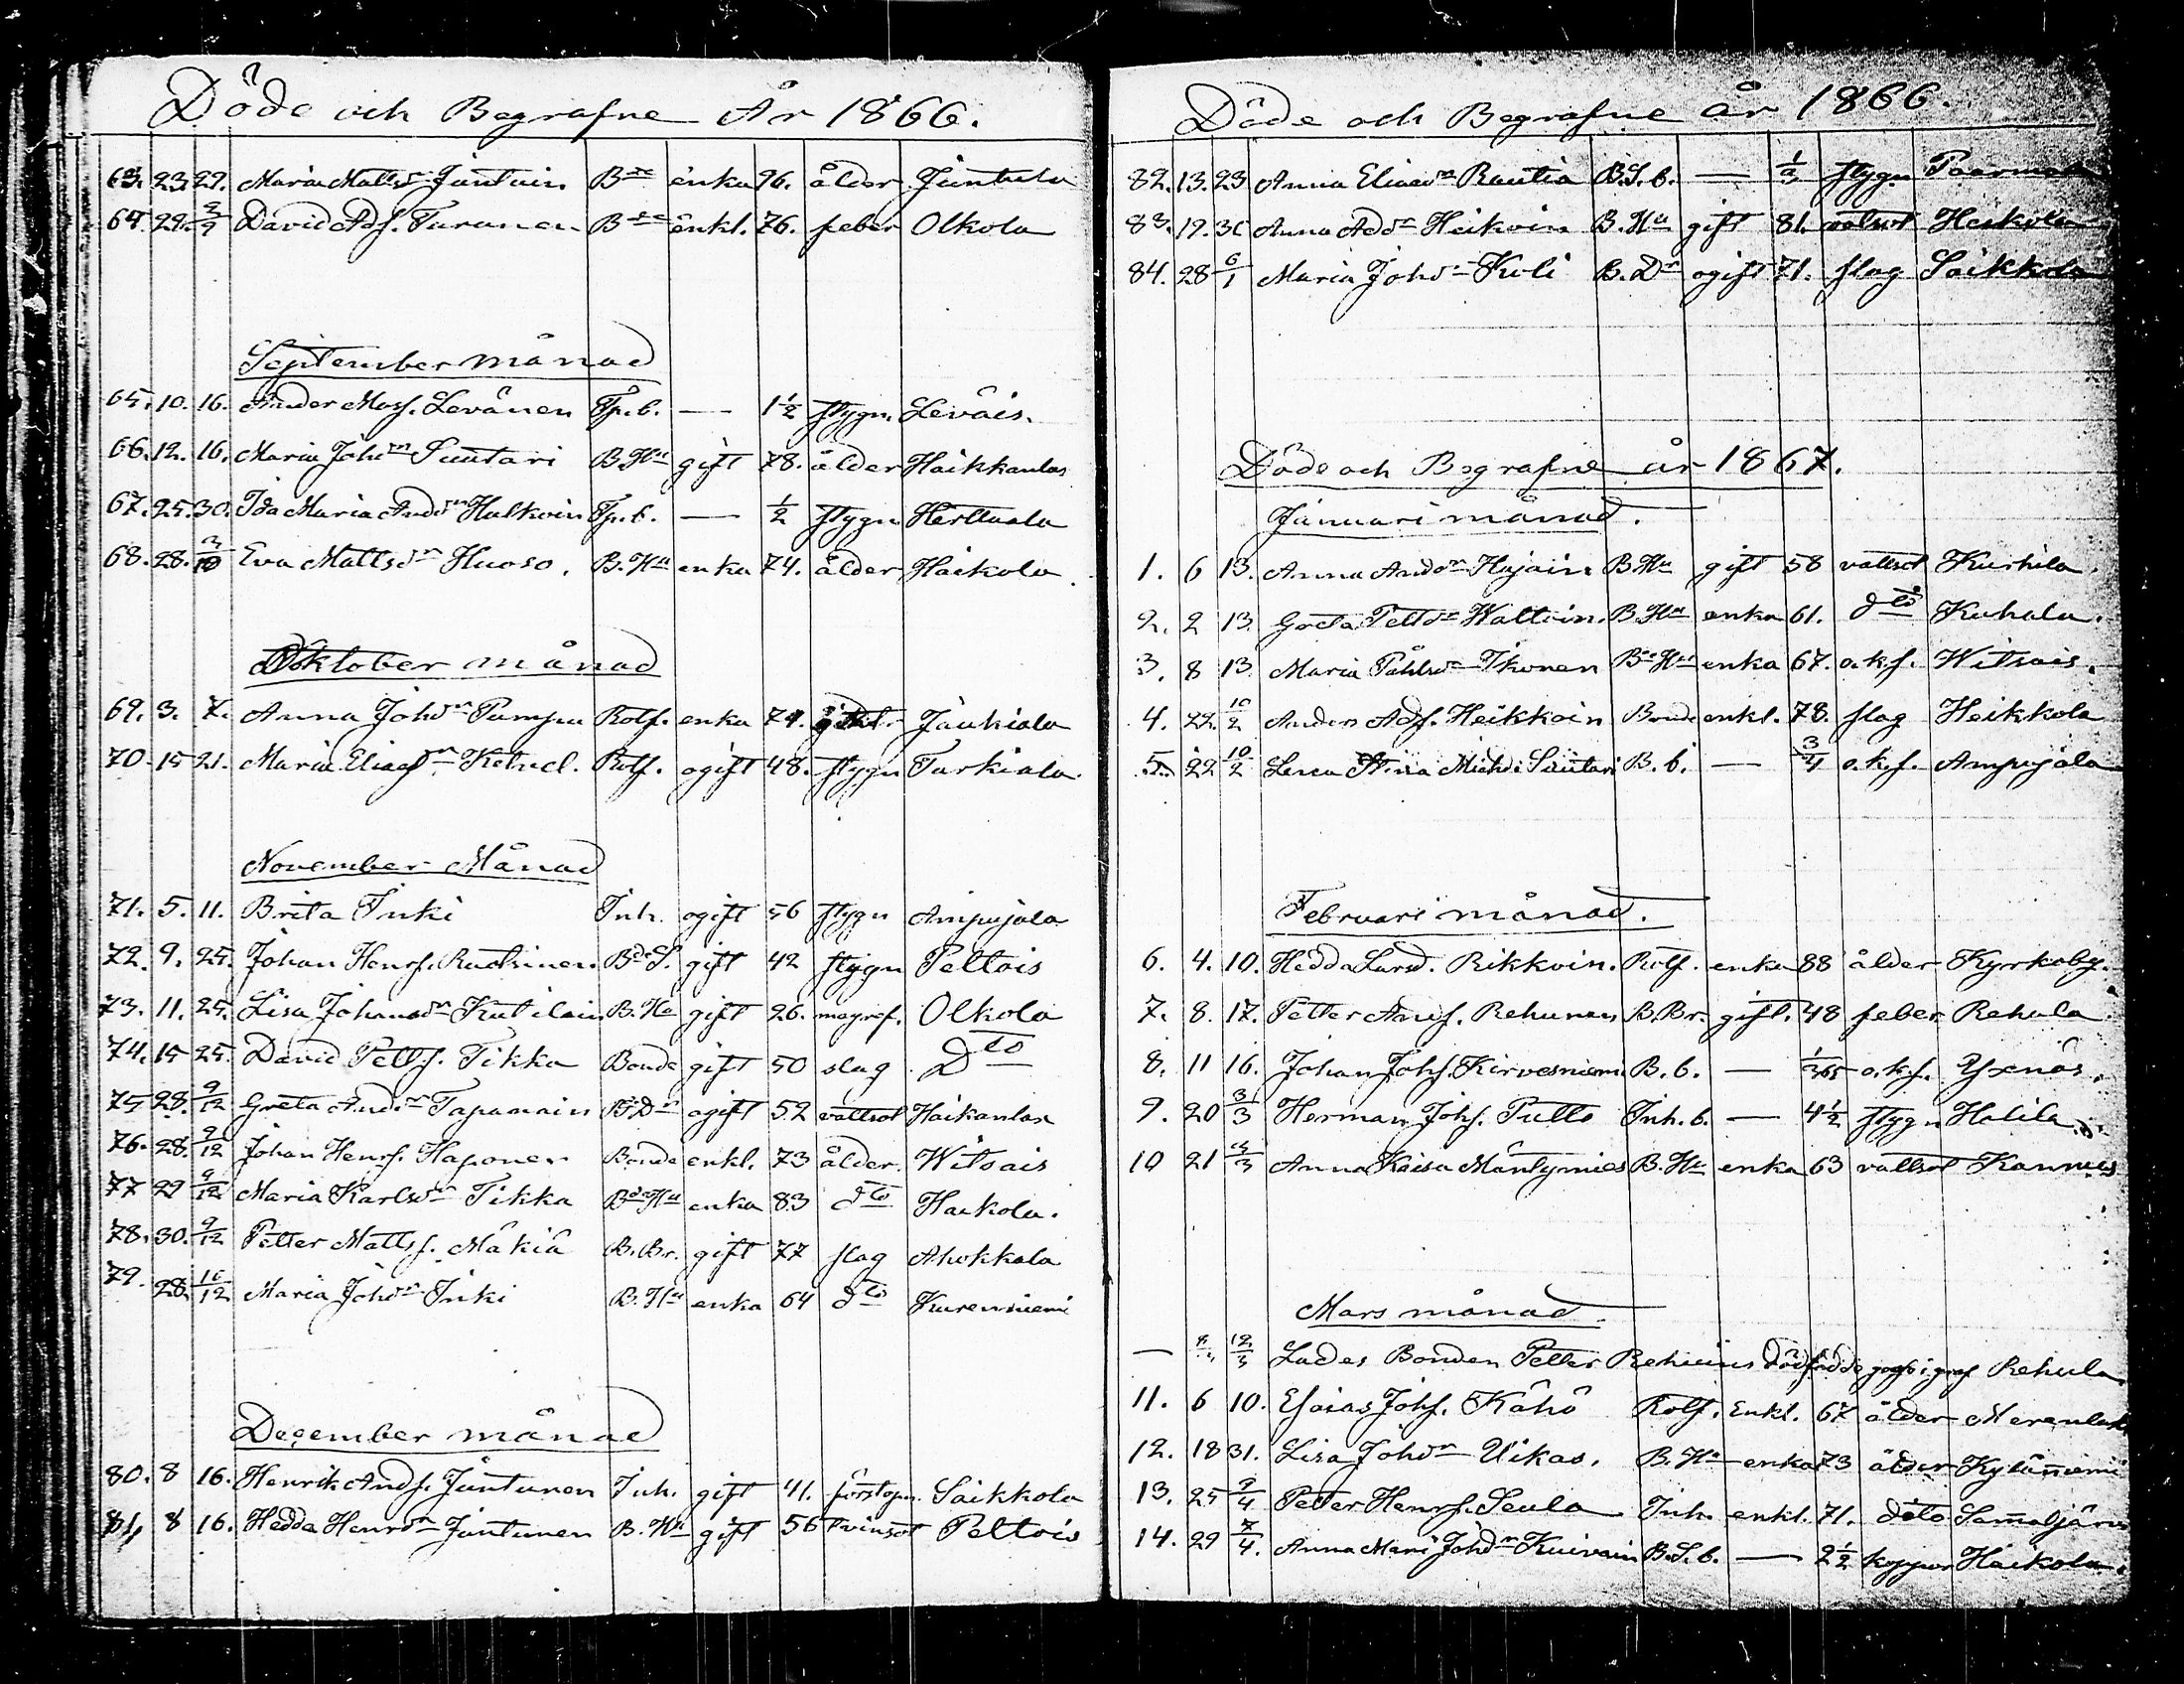 Döde och Begrafne År 1866.
63. 23. 29. Maria Mattsdr Jantuin Bde enka 96. ålder Jäntula
64. 29. 2/9 David Adf. Turunen Bde enkl. 76. feber Olkola
September månad
65. 10. 16. Ander Mosf. Levänen Tp. b. — 1 1/2 stygn. Leväis.
66. 12. 16. Maria Johdr Suutari B. Hu gift 78. ålder Haikkanlax
67. 25. 30. Ida Maria Andsdr Hulkoin Tp. b. — 1/2 stygn Herttuala
68. 28. 3/10 Eva Mattsdr Huoso. B. Hu enka 74. ålder Haikola.
Oktober månad
69. 3. 7. Anna Johdr Pumpu Rotf. enka 74. Jäukiala
70. 15 21. Maria Eliasdr Rotf. ogift 48. stygn Turkiala.
November Månad
71. 5. 11. Brita Inki Inh. ogift 56 stygn Ampujala
72. 9. 25. Johan Henrf. Ruotsinen. Bde S. gift 42 stygn Peltois
73. 11. 25. Lisa Johansdr Kutilain B. Hu gift 26. magref. Olkola
74. 15 25. David Pettf. Tikka Bonde gift 50 slag Dto
75 28. 9/12 Greta Andsdr Tapanain B. Dr ogift 52 vattsot Haikanlax
76. 28. 9/12 Johan Henrf. Haponen Bonde enkl. 73 ålder. Witsais
77 29 9/12 Maria Karlsdr Tikka Bde Hu enka 83 dto Haikola.
78. 30. 9/12 Petter Mattsf. Mäkiä B. Br. gift 77 slag Ahokkala
79. 28. 16/12 Maria Johdr Inki B. Hu enka 64 dto Kurenniemi
December månad
80. 8 16. Henrik Andf. Jäntunen Inh. gift 41. förstopn. Saikkola
81, 8 16. Hedda Henrdr Jäntunen B. Hu gift 56 tvinsot Peltois
Döde och Begrafne år 1866.
82. 13. 23 Anna Eliasdr Rautia B. S. b. — 1/3 stygn
83. 19. 30 Anna Addr Heikoin B. Hu gift 81. vattsot Heikola
84. 28 6/1 Maria Johdr Kuli B. Dr ogift 71. slag Saikkola
Döde och Begrafne år 1867.
Januari månad.
1. 6 13. Anna Andsdr Hajain B Hu gift 58 vattsot Kurhila.
2. 2 13. Greta Pettdr Waltoin. B. Hu enka 61. dto Kuhala.
3. 8 13. Maria Påhlsdr Ikonen Bde Hu enka 67. o.k.s. Witsais.
4. 22. 10/2 Anders Adf. Heikkoin Bonde enkl. 78. slag Heikkola
5. 22 10/2 Lena Stina Michd. Suutari B. b. — 3/4 o.k.s. Ampujala
Februari månad.
6. 4. 10. Hedda Larsd. Rikkoin. Rotf. enka 88 ålder Kyrkoby.
7. 8. 17. Petter Anf. Rehunen B. Br. gift. 48 feber Rehula
8. 11 16. Johan Johf. Kirvesniemi B. b. — 1/365 o.k.s. Yxnäs.
9. 20 3/3 Herman Johf. Pullo Inh. b. — 4 1/2 stygn Halila.
10 21 3/3 Anna Kaisa Mäntynies B. Hu enka 63 vattsot Kannus
Mars månad.
— 12/3 Lades Bonden Petter Rehuins dödfödde i graf Rehula
11. 6 10. Esaias Johf. Kähö Rotf. Enkl. 67 ålder Merenlaks
12. 18 31. Lisa Johdr Uikas. B. Hu enka 73 ålder Kyläniemi
13. 25 9/4 Petter Henrf. Seula Inh. enkl. 71. dito Samaljärvi
14. 29 7/4. Anna Mari Johdr Kuivain B. S. b. — 2 1/2 koppor Haikola.